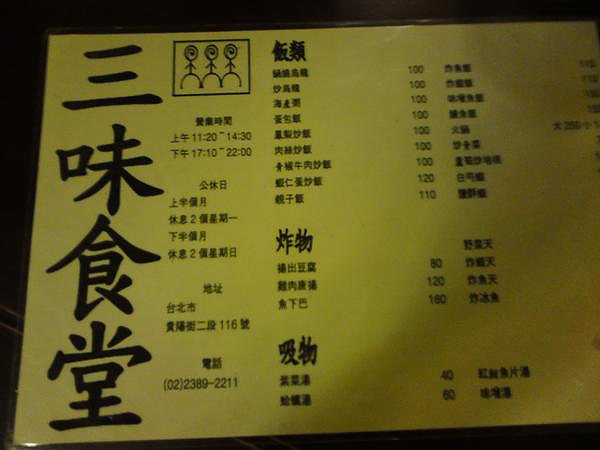 三味食堂
營業時間
上午 11:20~14:30
下午 17:10~22:00
公休日
上半個月
休息 2 個星期一
下半個月
休息 2 個星期日
地址
台北市
貴陽街二段 116 號
電話
(02)2389-2211
飯類
鍋燒烏龍 100
炒烏龍 100
海產粥 100
蛋包飯 100
鳳梨炒飯 100
肉絲炒飯 100
青椒牛肉炒飯 100
蝦仁蛋炒飯 120
親子飯 110
炸魚飯 110
炸蝦飯
味噌魚飯
鰻魚飯
火鍋 大 250 小
炒青菜
蘆筍炒培根
鹽酥蝦
炸物
揚出豆腐 80
雞肉唐揚 120
魚下巴 160
野菜天
炸蝦天
炸魚天
炸冰魚
吸物
紫菜湯 40
蛤蠣湯 60
紅鮭魚片湯
味噌湯